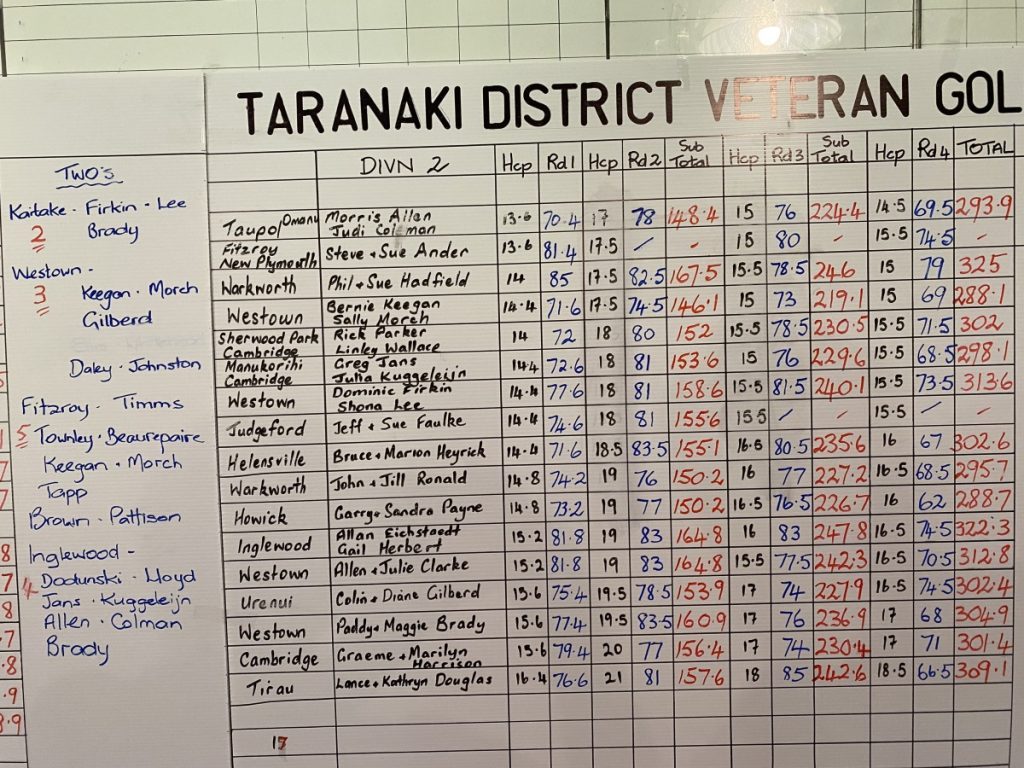 TARANAKI DISTRICT VETERAN GOL
TWO'S
Kaitake - Firkin - Lee
2 Brady
Westown -
3 Keegan - Morch
Gilberd
Daley - Johnston
Fitzroy - Timms
5 Townley - Beaurepaire
Keegan + Morch
Tapp
Brown - Pattison
Inglewood -
4 Dodunski - Lloyd
Jans - Kuggeleijn
Allen - Colman
Brady
8
7
8
.7
.8
.9
3.9
DIVN 2 Hcp Rd 1 Hcp Rd 2 Sub Total Hcp Rd 3 Sub Total Hcp Rd 4 TOTAL
Taupo/Omanu Morris Allen Judi Colman 13.6 70.4 17 78 148.4 15 76 224.4 14.5 69.5 293.9
Fitzroy New Plymouth Steve + Sue Ander 13.6 81.4 17.5 / - 15 80 - 15.5 74.5 -
Warkworth Phil + Sue Hadfield 14 85 17.5 82.5 167.5 15.5 78.5 246 15 79 325
Westown Bernie Keegan Sally Morch 14.4 71.6 17.5 74.5 146.1 15 73 219.1 15 69 288.1
Sherwood Park Cambridge Rick Parker Linley Wallace 14 72 18 80 152 15.5 78.5 230.5 15.5 71.5 302
Manukorihi Cambridge Greg Jans Julia Kuggeleijn 14.4 72.6 18 81 153.6 15 76 229.6 15.5 68.5 298.1
Westown Dominic Firkin Shona Lee 14.4 77.6 18 81 158.6 15.5 81.5 240.1 15.5 73.5 313.6
Judgeford Jeff + Sue Faulke 14.4 74.6 18 81 155.6 15.5 / / 15.5 / -
Helensville Bruce + Marion Heyrick 14.4 71.6 18.5 83.5 155.1 16.5 80.5 235.6 16 67 302.6
Warkworth John + Jill Ronald 14.8 74.2 19 76 150.2 16 77 227.2 16.5 68.5 295.7
Howick Garry + Sandra Payne 14.8 73.2 19 77 150.2 16.5 76.5 226.7 16 62 288.7
Inglewood Allan Eichstaedt Gail Herbert 15.2 81.8 19 83 164.8 16 83 247.8 16.5 74.5 322.3
Westown Allen + Julie Clarke 15.2 81.8 19 83 164.8 15.5 77.5 242.3 16.5 70.5 312.8
Urenui Colin + Diane Gilberd 15.6 75.4 19.5 78.5 153.9 17 74 227.9 16.5 74.5 302.4
Westown Paddy + Maggie Brady 15.6 77.4 19.5 83.5 160.9 17 76 236.9 17 68 304.9
Cambridge Graeme + Marilyn Harrison 15.6 79.4 20 77 156.4 17 74 230.4 17 71 301.4
Tirau Lance + Kathryn Douglas 16.4 76.6 21 81 157.6 18 85 242.6 18.5 66.5 309.1